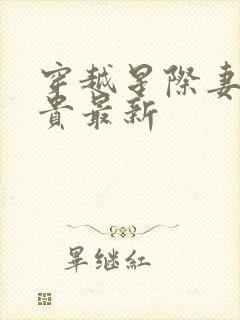 穿越星際妻
貴最新
畢继紅